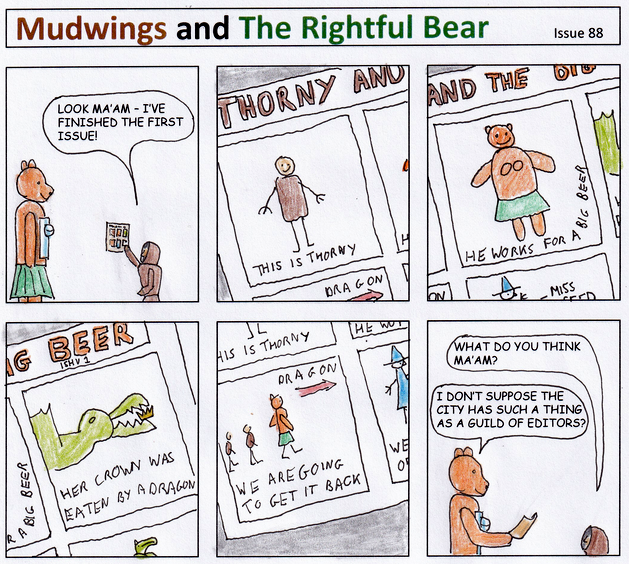 Mudwings and The Rightful Bear
Issue 88
LOOK MA'AM - I'VE
FINISHED THE FIRST
ISSUE!
THORNY AND
THIS IS THORNY
DRAGON
AND THE BIG
HE WORKS FOR A BIG BEER
MISS
BIG BEER
ISHU 1
HER CROWN WAS
EATEN BY A DRAGON
R A BIG BEER
HIS IS THORNY
HE WO
DRAGON
WE ARE GOING
TO GET IT BACK
WE
WHAT DO YOU THINK
MA'AM?
I DON'T SUPPOSE THE
CITY HAS SUCH A THING
AS A GUILD OF EDITORS?